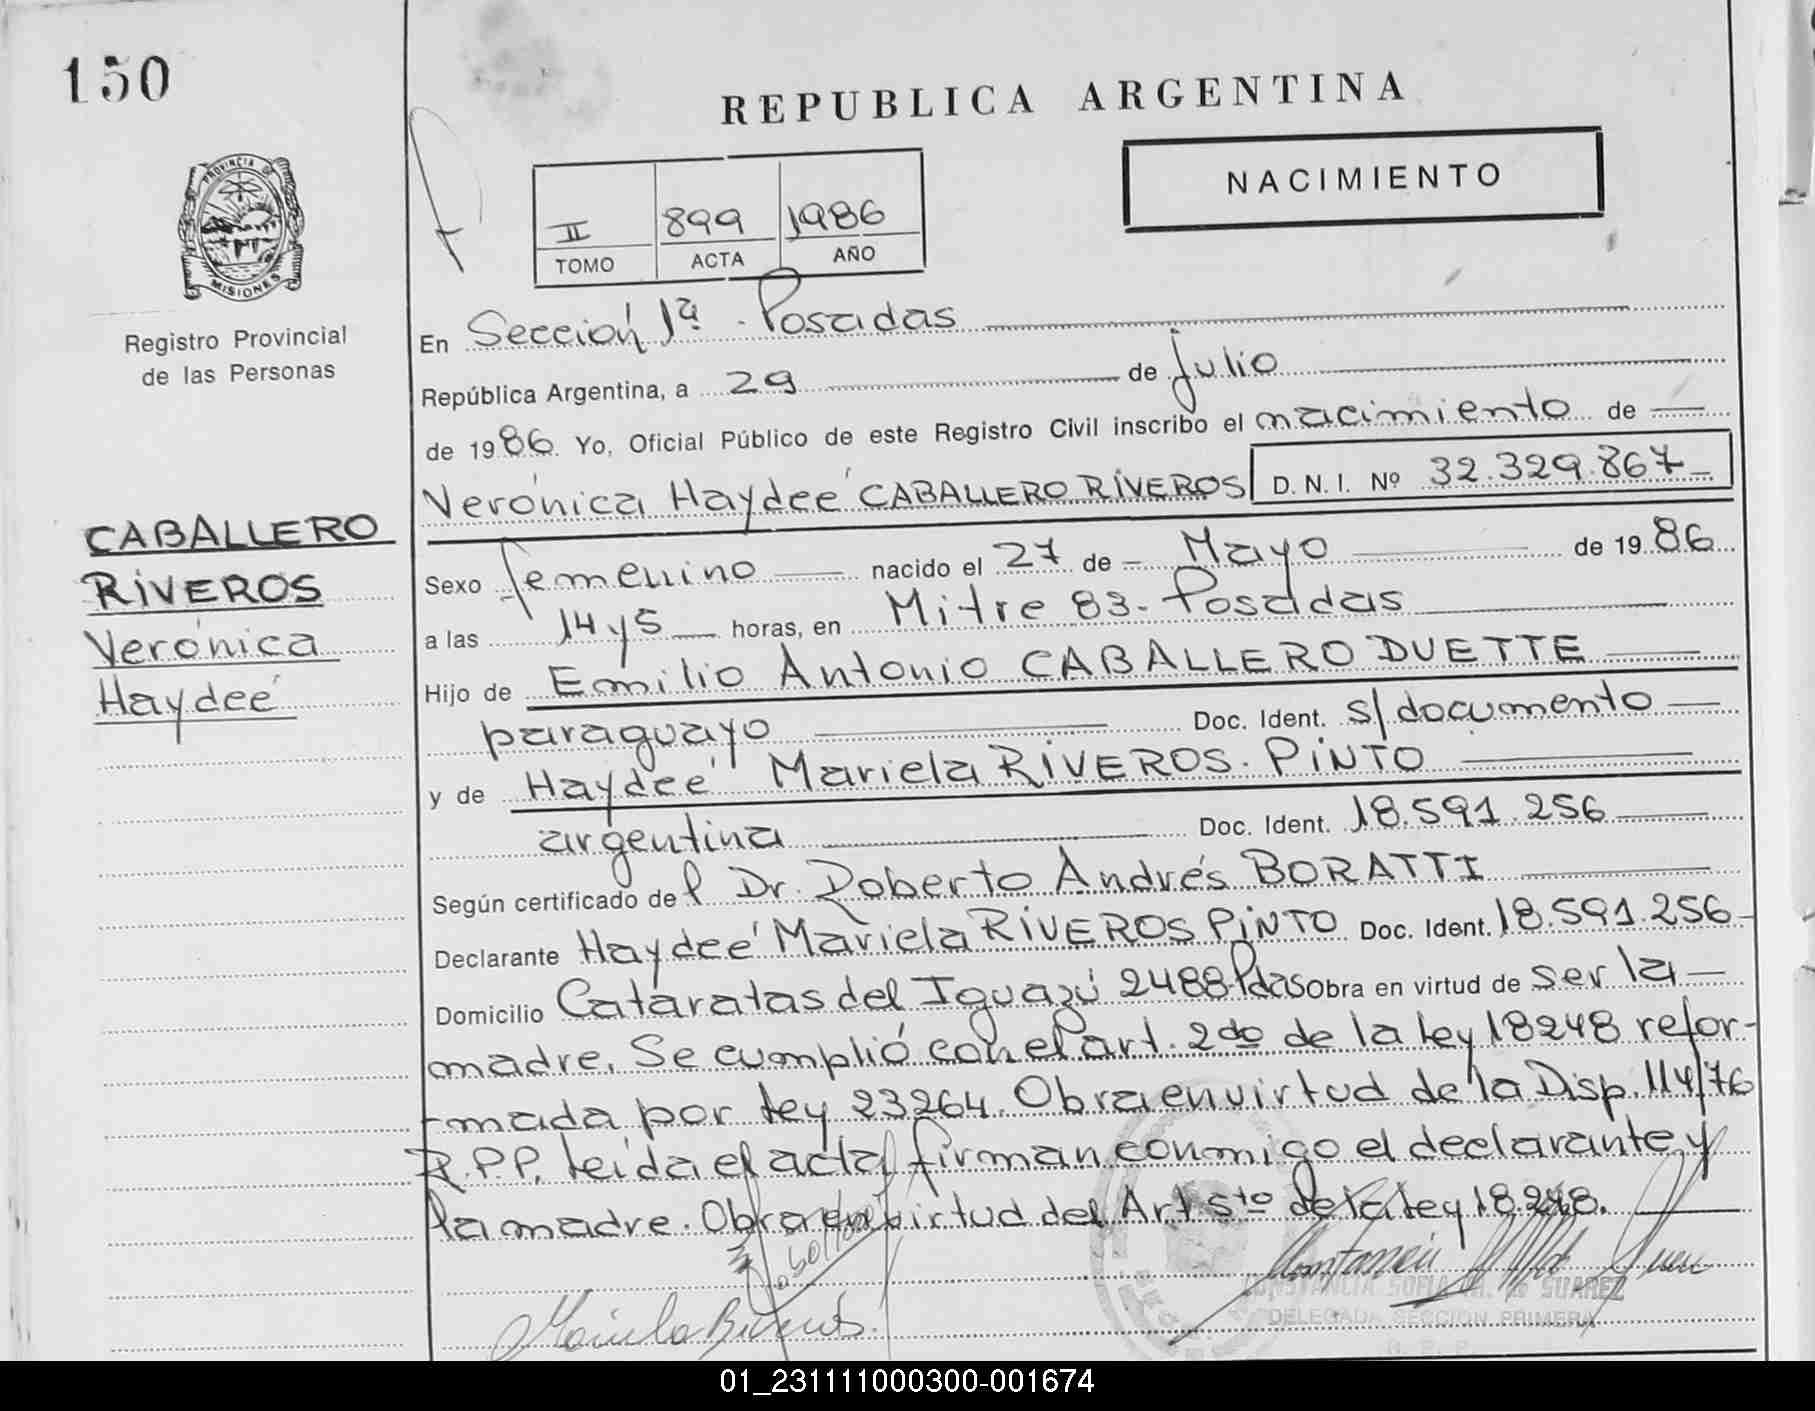 150
REPUBLICA ARGENTINA
NACIMIENTO
II 899 1986
TOMO ACTA AÑO
PROVINCIA DE
MISIONES
Registro Provincial
de las Personas
CABALLERO
RIVEROS
Verónica
Haydeé
En Sección 1ª. Posadas
República Argentina, a 29 de Julio
de 1986. Yo, Oficial Público de este Registro Civil inscribo el nacimiento de
Verónica Haydeé CABALLERO RIVEROS D. N. I. Nº 32.329.867
Sexo femenino nacido el 27 de Mayo de 1986
a las 14 y 5 horas, en Mitre 83. Posadas
Hijo de Emilio Antonio CABALLERO DUETTE
paraguayo Doc. Ident. s/documento
y de Haydeé Mariela RIVEROS PINTO
argentina Doc. Ident. 18.591.256
Según certificado del Dr. Roberto Andrés BORATTI
Declarante Haydeé Mariela RIVEROS PINTO Doc. Ident. 18.591.256
Domicilio Cataratas del Iguazú 2488 Pdas Obra en virtud de ser la
madre. Se cumplió con el art. 2do de la ley 18248 refor-
mada por ley 23264. Obra en virtud de la Disp. 114/76
R.P.P. leída el acta, firman conmigo el declarante y
la madre. Obra en virtud del Art 5to de la ley 18.248.
Mariela Riveros
CONSTANCIA SOFIA SUAREZ
DELEGADA SECCION PRIMERA
01_231111000300-001674